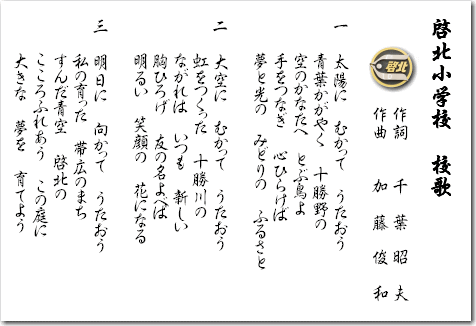 啓北小学校 校歌
啓北
作詞 千葉昭夫
作曲 加藤俊和
一
太陽に むかって うたおう
青葉かがやく 十勝野の
空のかなたへ とぶ鳥よ
手をつなぎ 心ひらけば
夢と光の みどりの ふるさと
二
大空に むかって うたおう
虹をつくった 十勝川の
ながれは いつも 新しい
胸ひろげ 友の名よべば
明るい 笑顔の 花になる
三
明日に 向かって うたおう
私の育った 帯広のまち
すんだ青空 啓北の
こころふれあう この庭に
大きな 夢を 育てよう